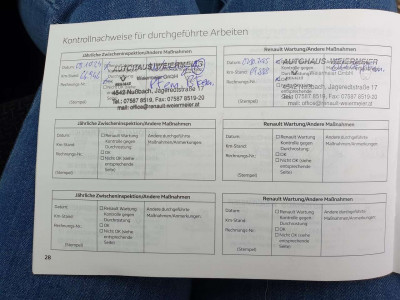 Kontrollnachweise für durchgeführte Arbeiten
Jährliche Zwischeninspektion/Andere Maßnahmen
Datum:
Km-Stand:
AUTOHAUS-WEIERMEIER
Weiermeier GmbH
4542 Nußbach, Jägeredtstraße 17
Tel.: 07587 8519, Fax: 07587 8519-20
mail: office@renault-weiermeier.at
(Stempel)
Renault Wartung/Andere Maßnahmen
Datum:
Km-Stand:
AUTOHAUS-WEIERMEIER
Weiermeier GmbH
4542 Nußbach, Jägeredtstraße 17
Tel.: 07587 8519, Fax: 07587 8519-20
mail: office@renault-weiermeier.at
(Stempel)
Jährliche Zwischeninspektion/Andere Maßnahmen
Datum:
Km-Stand:
Rechnungs-Nr.:
(Stempel)
Renault Wartung
Kontrolle gegen
Durchrostung
OK
Nicht OK (siehe
entsprechende
Seite)
Andere durchgeführte
Maßnahmen/Anmerkungen:
Renault Wartung/Andere Maßnahmen
Datum:
Km-Stand:
Rechnungs-Nr.:
(Stempel)
Renault Wartung
Kontrolle gegen
Durchrostung
OK
Nicht OK (siehe
entsprechende
Seite)
Andere durchgeführte
Maßnahmen/Anmerkungen:
Jährliche Zwischeninspektion/Andere Maßnahmen
Datum:
Km-Stand:
Rechnungs-Nr.:
(Stempel)
Renault Wartung
Kontrolle gegen
Durchrostung
OK
Nicht OK (siehe
entsprechende
Seite)
Andere durchgeführte
Maßnahmen/Anmerkungen:
Renault Wartung/Andere Maßnahmen
Datum:
Km-Stand:
Rechnungs-Nr.:
(Stempel)
Renault Wartung
Kontrolle gegen
Durchrostung
OK
Nicht OK (siehe
entsprechende
Seite)
Andere durchgeführte
Maßnahmen/Anmerkungen:
28